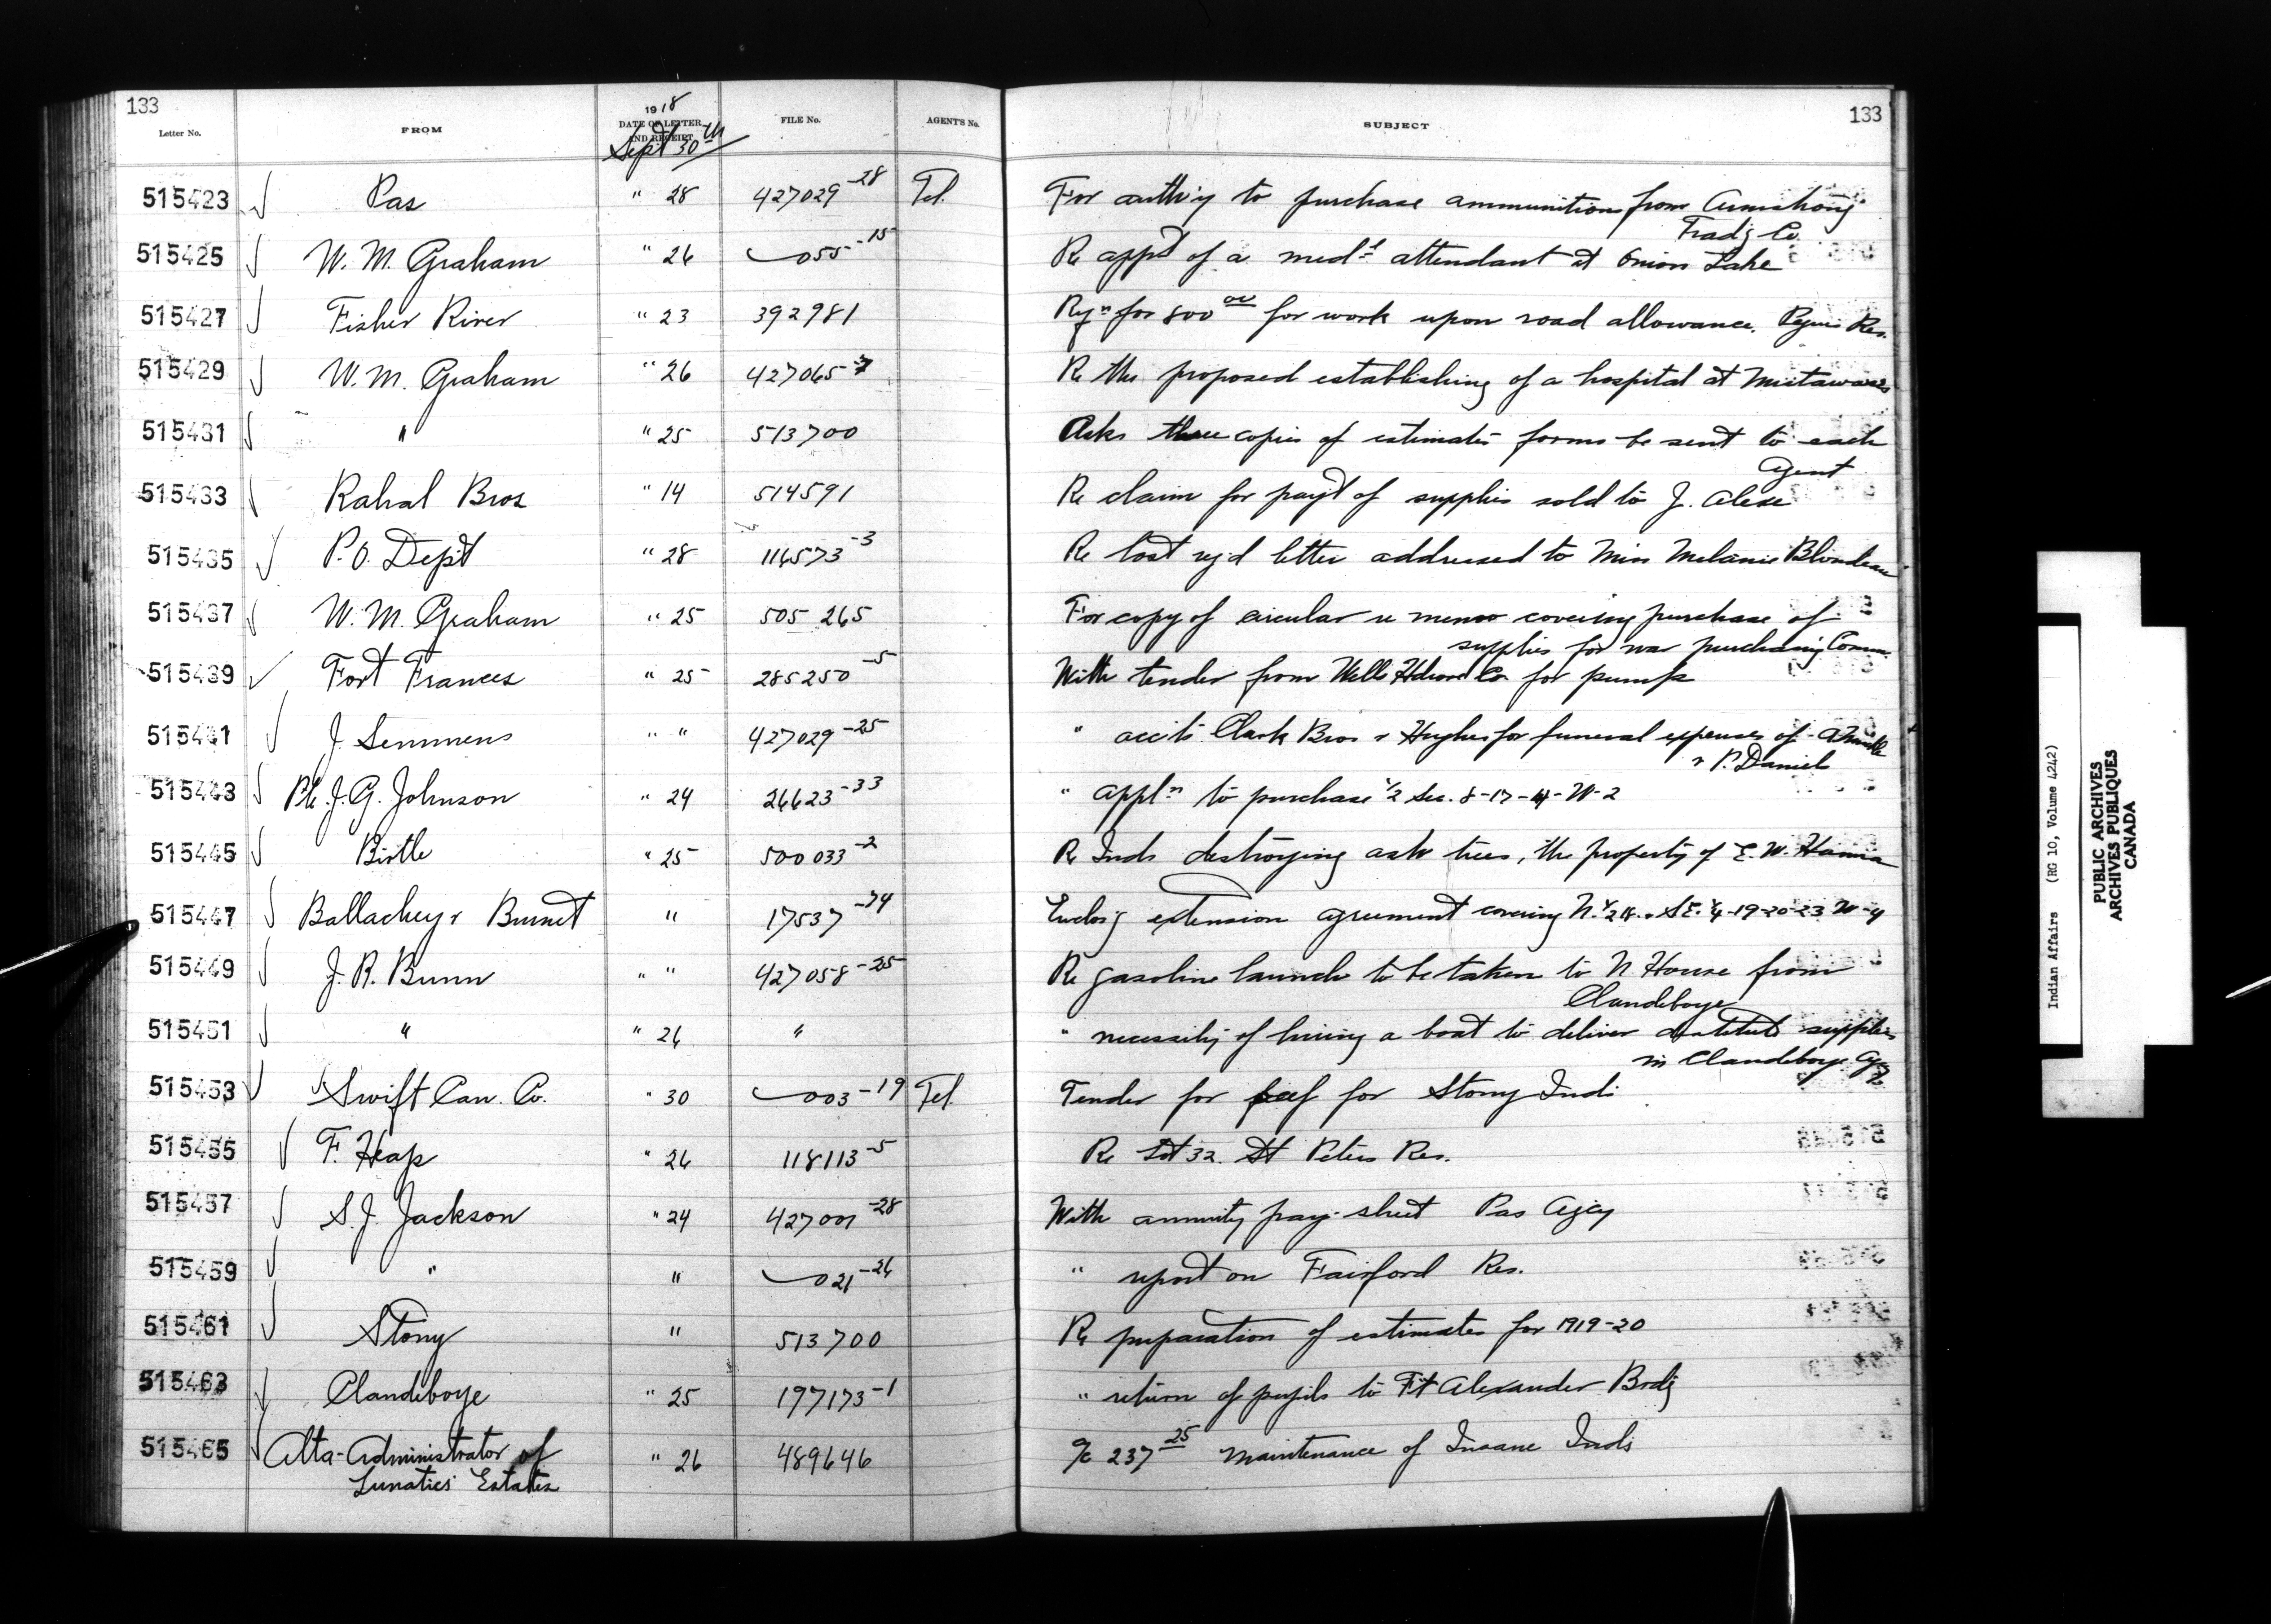 133
133
Letter No.
FROM
1918
DATE OF LETTER AND RECEIPT
FILE No.
AGENT'S No.
SUBJECT
Sept 30th
515423 Pas " 28 427029-28 Tel. For auth'y to purchase ammunition from Armstrong
Trad'g Co.
515425 W. M. Graham " 26 055-15 Re app't of a med'l attendant at Onion Lake
515427 Fisher River " 23 392981 Rqn for 800 00 for work upon road allowance. Peguis Res.
515429 W. M. Graham " 26 427065 Re the proposed establishing of a hospital at Mistawasis
515431 " " 25 513700 Asks three copies of estimates forms be sent to each
Agent
515433 Rahal Bros " 14 514591 Re claim for pay't of supplies sold to J. Alexe
515435 P.O. Dept " 28 116573-3 Re lost reg'd letter addressed to Miss Melanie Blondeau
515437 W. M. Graham " 25 505 265 For copy of circular re memo covering purchase of
supplies for war purchasing Comm.
515439 Fort Frances " 25 285250-5 With tender from Wells Hdware Co. for pump
515441 J. Semmens " " 427029-25 " acc'ts Clark Bros & Hughes for funeral expenses of
& P. Daniels
515443 Pte. J. G. Johnson " 24 26623-33 " appl'n to purchase 1/2 Sec. 8-17-4-W-2
515445 Birtle " 25 500 033-2 Re Inds destroying ash trees, the property of E. W. Hanna
515447 Ballachey & Burnet " 17537-74 Enclos'g extension agreement covering N. 1/2 18. & SE. 1/4-19-20-23 W-4
515449 J. R. Bunn " " 427058-25 Re gasoline launch to be taken to N. House from
Clandeboye
515451 " " 26 " " necessity of hiring a boat to deliver destitute supplies
in Clandeboye Agcy
515453 Swift Can. Co. " 30 003-19 Tel. Tender for beef for Stony Inds
515455 F. Heap " 26 118113-5 Re Lot 32. St Peters Res.
515457 S. J. Jackson " 24 427001-28 With annuity pay-sheet Pas Agcy
515459 " " 021-26 " report on Fairford Res.
515461 Stony " 513700 Re preparation of estimates for 1919-20
515463 Clandeboye " 25 197173-1 " return of pupils to Ft Alexander Brd'g
515465 Alta-Administrator of " 26 489646 a/c 237 25 Maintenance of Insane Inds
Lunatics' Estates
Indian Affairs (RG 10, Volume 4242)
PUBLIC ARCHIVES
ARCHIVES PUBLIQUES
CANADA